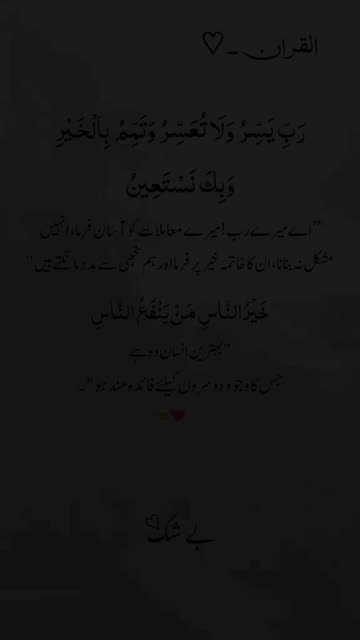 القرآن ـ♡
رَبِّ يَسِّرْ وَلَا تُعَسِّرْ وَتَمِّمْ بِالْخَيْرِ
وَبِكَ نَسْتَعِينُ
"اے میرے رب! میرے معاملات کو آسان فرما، انہیں
مشکل نہ بنانا، ان کا خاتمہ خیر پر فرما اور ہم تجھی سے مدد مانگتے ہیں"
خَيْرُ النَّاسِ مَنْ يَنْفَعُ النَّاسِ
"بہترین انسان وہ ہے
جس کا وجود دوسروں کیلئے فائدہ مند ہو"۔
بے شک